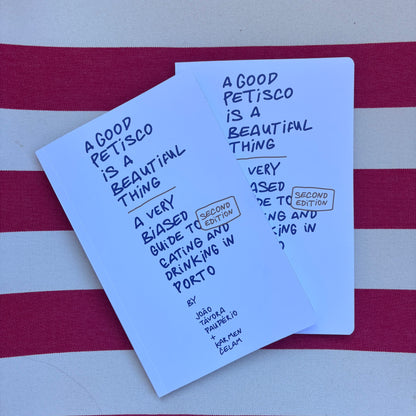 A GOOD
PETISCO
IS A
BEAUTIFUL
THING
A VERY
BIASED
GUIDE TO
EATING AND
DRINKING IN
PORTO
SECOND
EDITION
BY
JOÃO
TÁVORA
PAUPÉRIO
+
KARMEN
ČELAM
A GOOD
PETISCO
IS A
BEAUTIFUL
THING
VERY
ASED
IDE TO
NG AND
NG IN
SECOND
EDITION